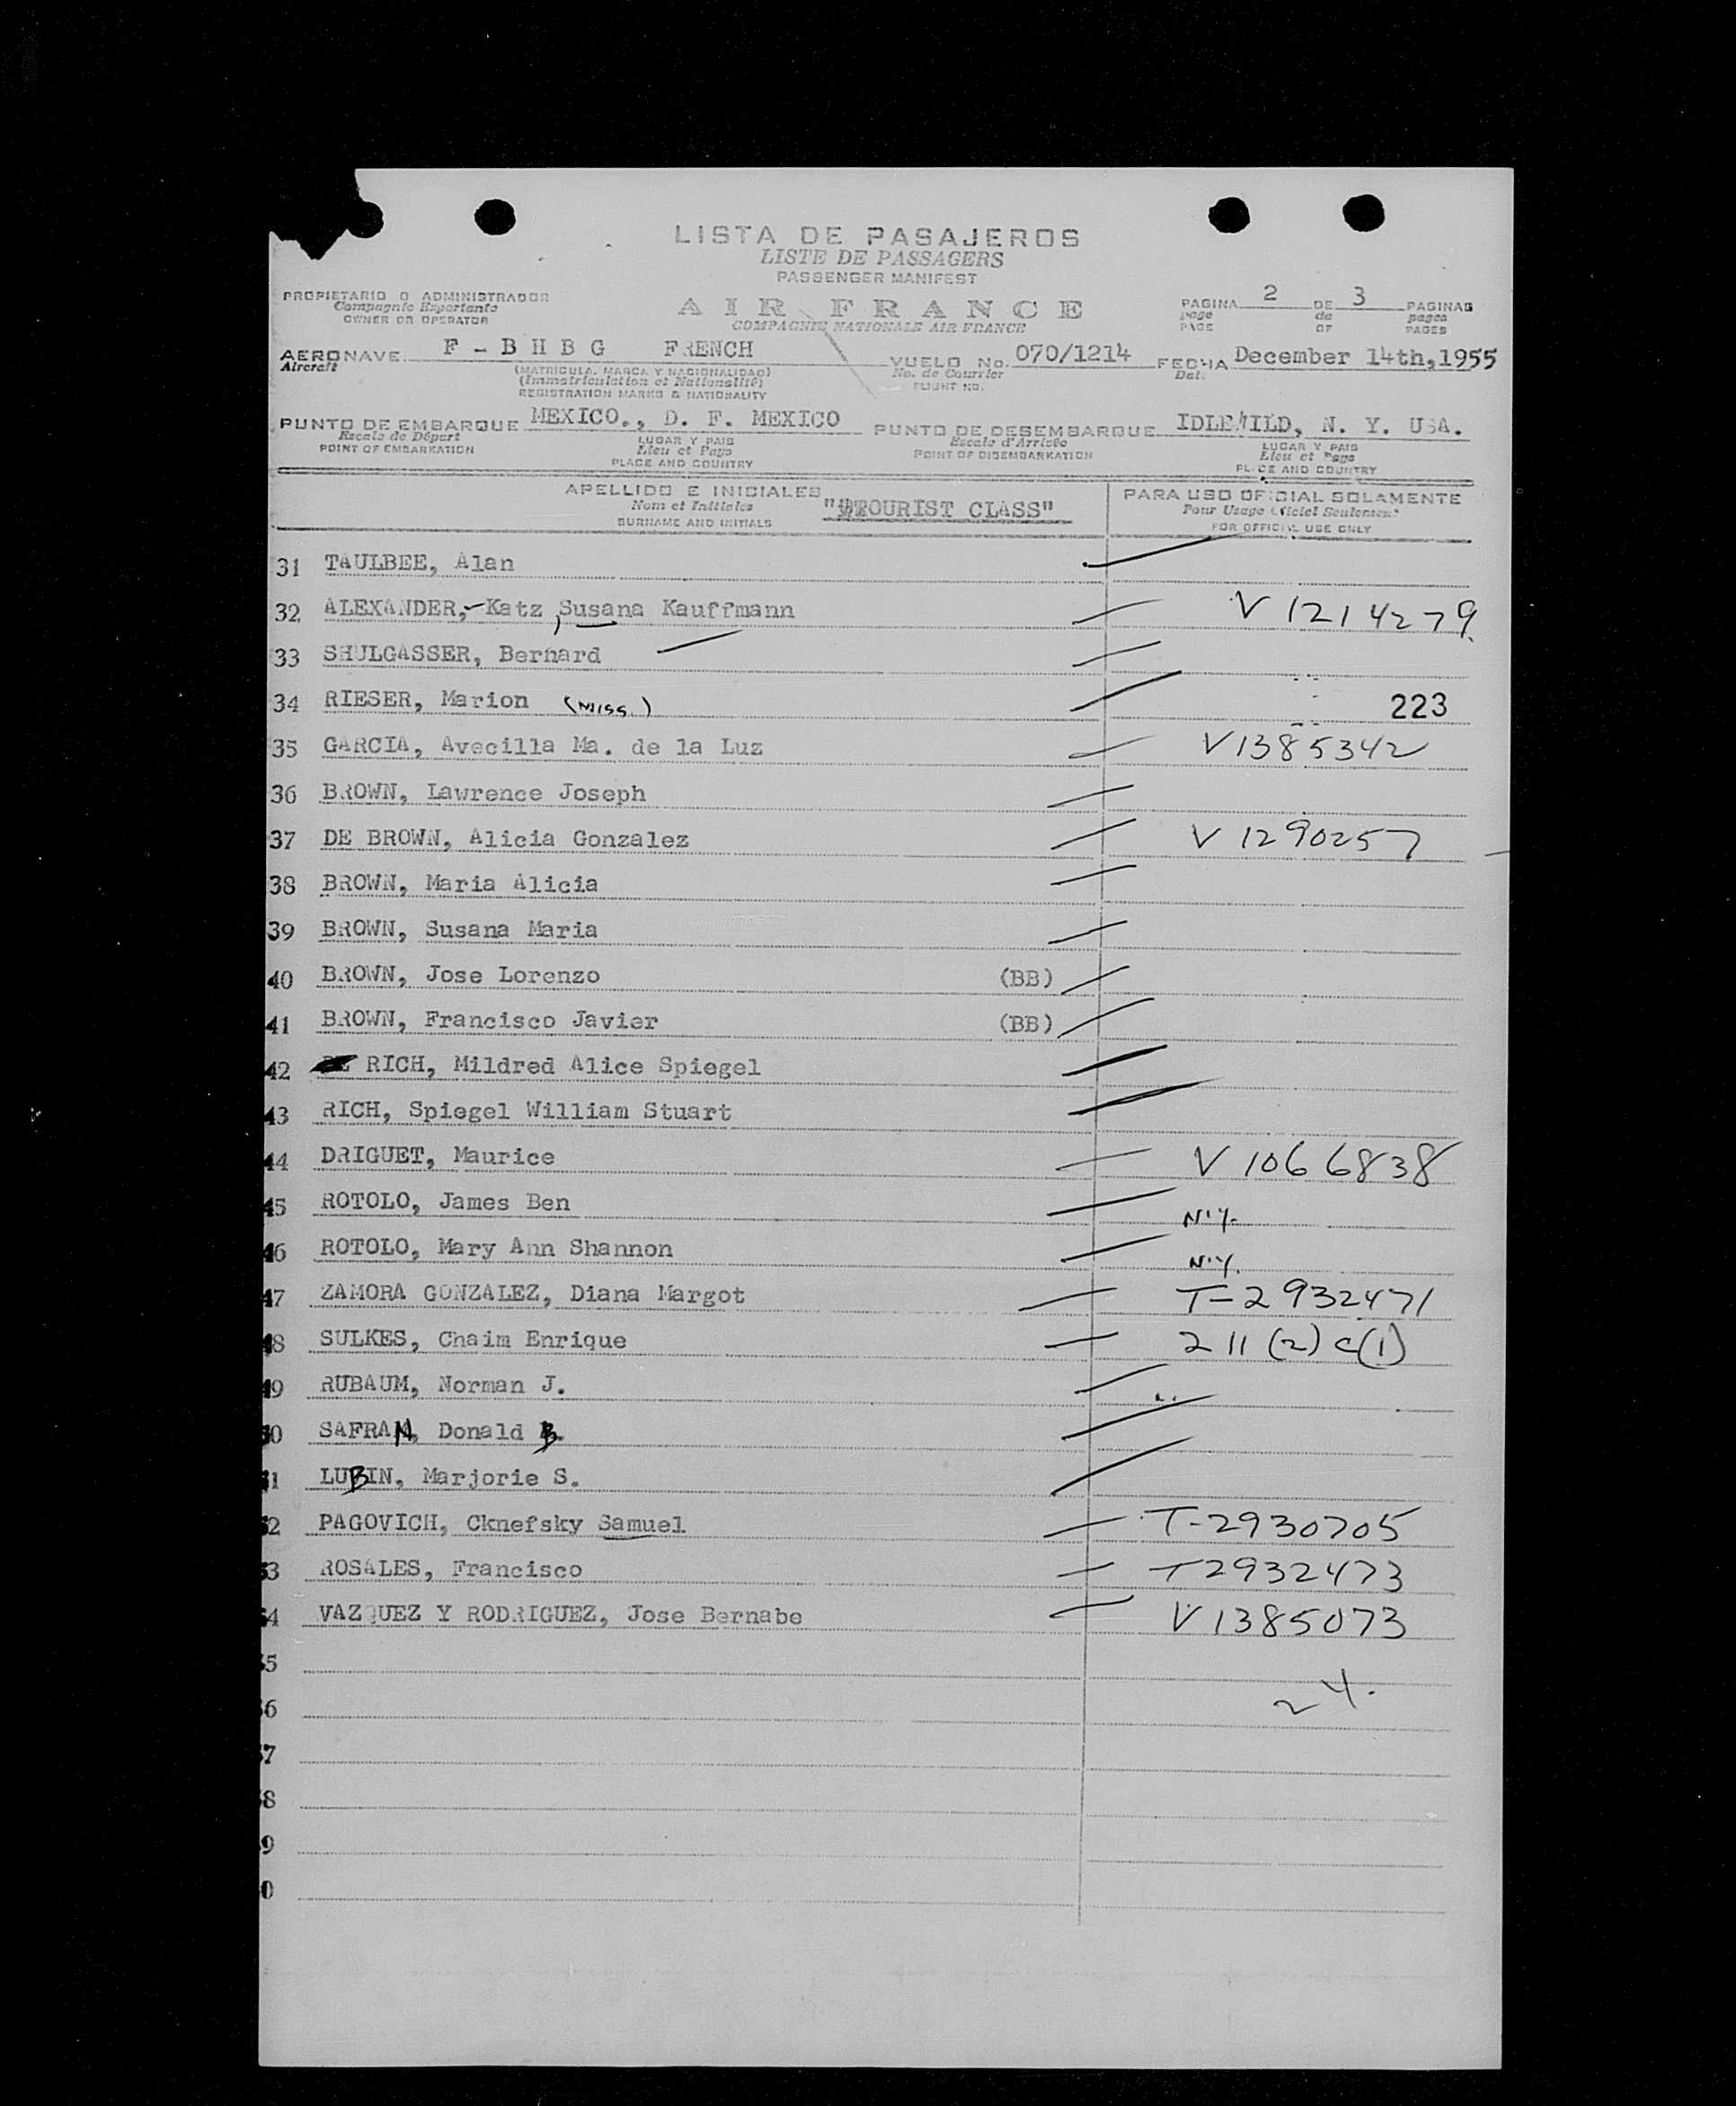 LISTA DE PASAJEROS
LISTE DE PASSAGERS
PASSENGER MANIFEST
PROPIETARIO O ADMINISTRADOR
Compagnie Exportante
OWNER OR OPERATOR
AIR FRANCE
COMPAGNIE NATIONALE AIR FRANCE
PAGINA 2 DE 3 PAGINAS
page de pages
PAGE OF PAGES
AERONAVE F - B H B G FRENCH VUELO No. 070/1214 FECHA December 14th,1955
Aircraft (MATRICULA, MARCA Y NACIONALIDAD) No. de Courrier Dat.
(Immatriculation et Nationalité) FLIGHT NO.
REGISTRATION MARKS & NATIONALITY
PUNTO DE EMBARQUE MEXICO., D. F. MEXICO PUNTO DE DESEMBARQUE IDLEWILD, N. Y. USA.
Escale de Départ LUGAR Y PAIS Escale d'Arrivée LUGAR Y PAIS
POINT OF EMBARKATION Lieu et Pays POINT OF DISEMBARKATION Lieu et Pays
PLACE AND COUNTRY PLACE AND COUNTRY
APELLIDO E INICIALES PARA USO OFICIAL SOLAMENTE
Nom et Initiales "TOURIST CLASS" Pour Usage Officiel Seulement
SURNAME AND INITIALS FOR OFFICIAL USE ONLY
31 TAULBEE, Alan
32 ALEXANDER,-Katz, Susana Kauffmann V 1214279
33 SHULGASSER, Bernard
34 RIESER, Marion (MISS.) 223
35 GARCIA, Avecilla Ma. de la Luz V1385342
36 BROWN, Lawrence Joseph
37 DE BROWN, Alicia Gonzalez V 1290257
38 BROWN, Maria Alicia
39 BROWN, Susana Maria
40 BROWN, Jose Lorenzo (BB)
41 BROWN, Francisco Javier (BB)
42 RICH, Mildred Alice Spiegel
43 RICH, Spiegel William Stuart
44 DRIGUET, Maurice V 1066838
45 ROTOLO, James Ben N.Y.
46 ROTOLO, Mary Ann Shannon N.Y.
47 ZAMORA GONZALEZ, Diana Margot T-2932471
48 SULKES, Chaim Enrique 211 (2) c(1)
49 RUBAUM, Norman J.
50 SAFRAN, Donald B.
51 LUBIN, Marjorie S.
52 PAGOVICH, Cknefsky Samuel T-2930705
53 ROSALES, Francisco T2932473
54 VAZQUEZ Y RODRIGUEZ, Jose Bernabe V1385073
55
56 24.
57
58
59
0